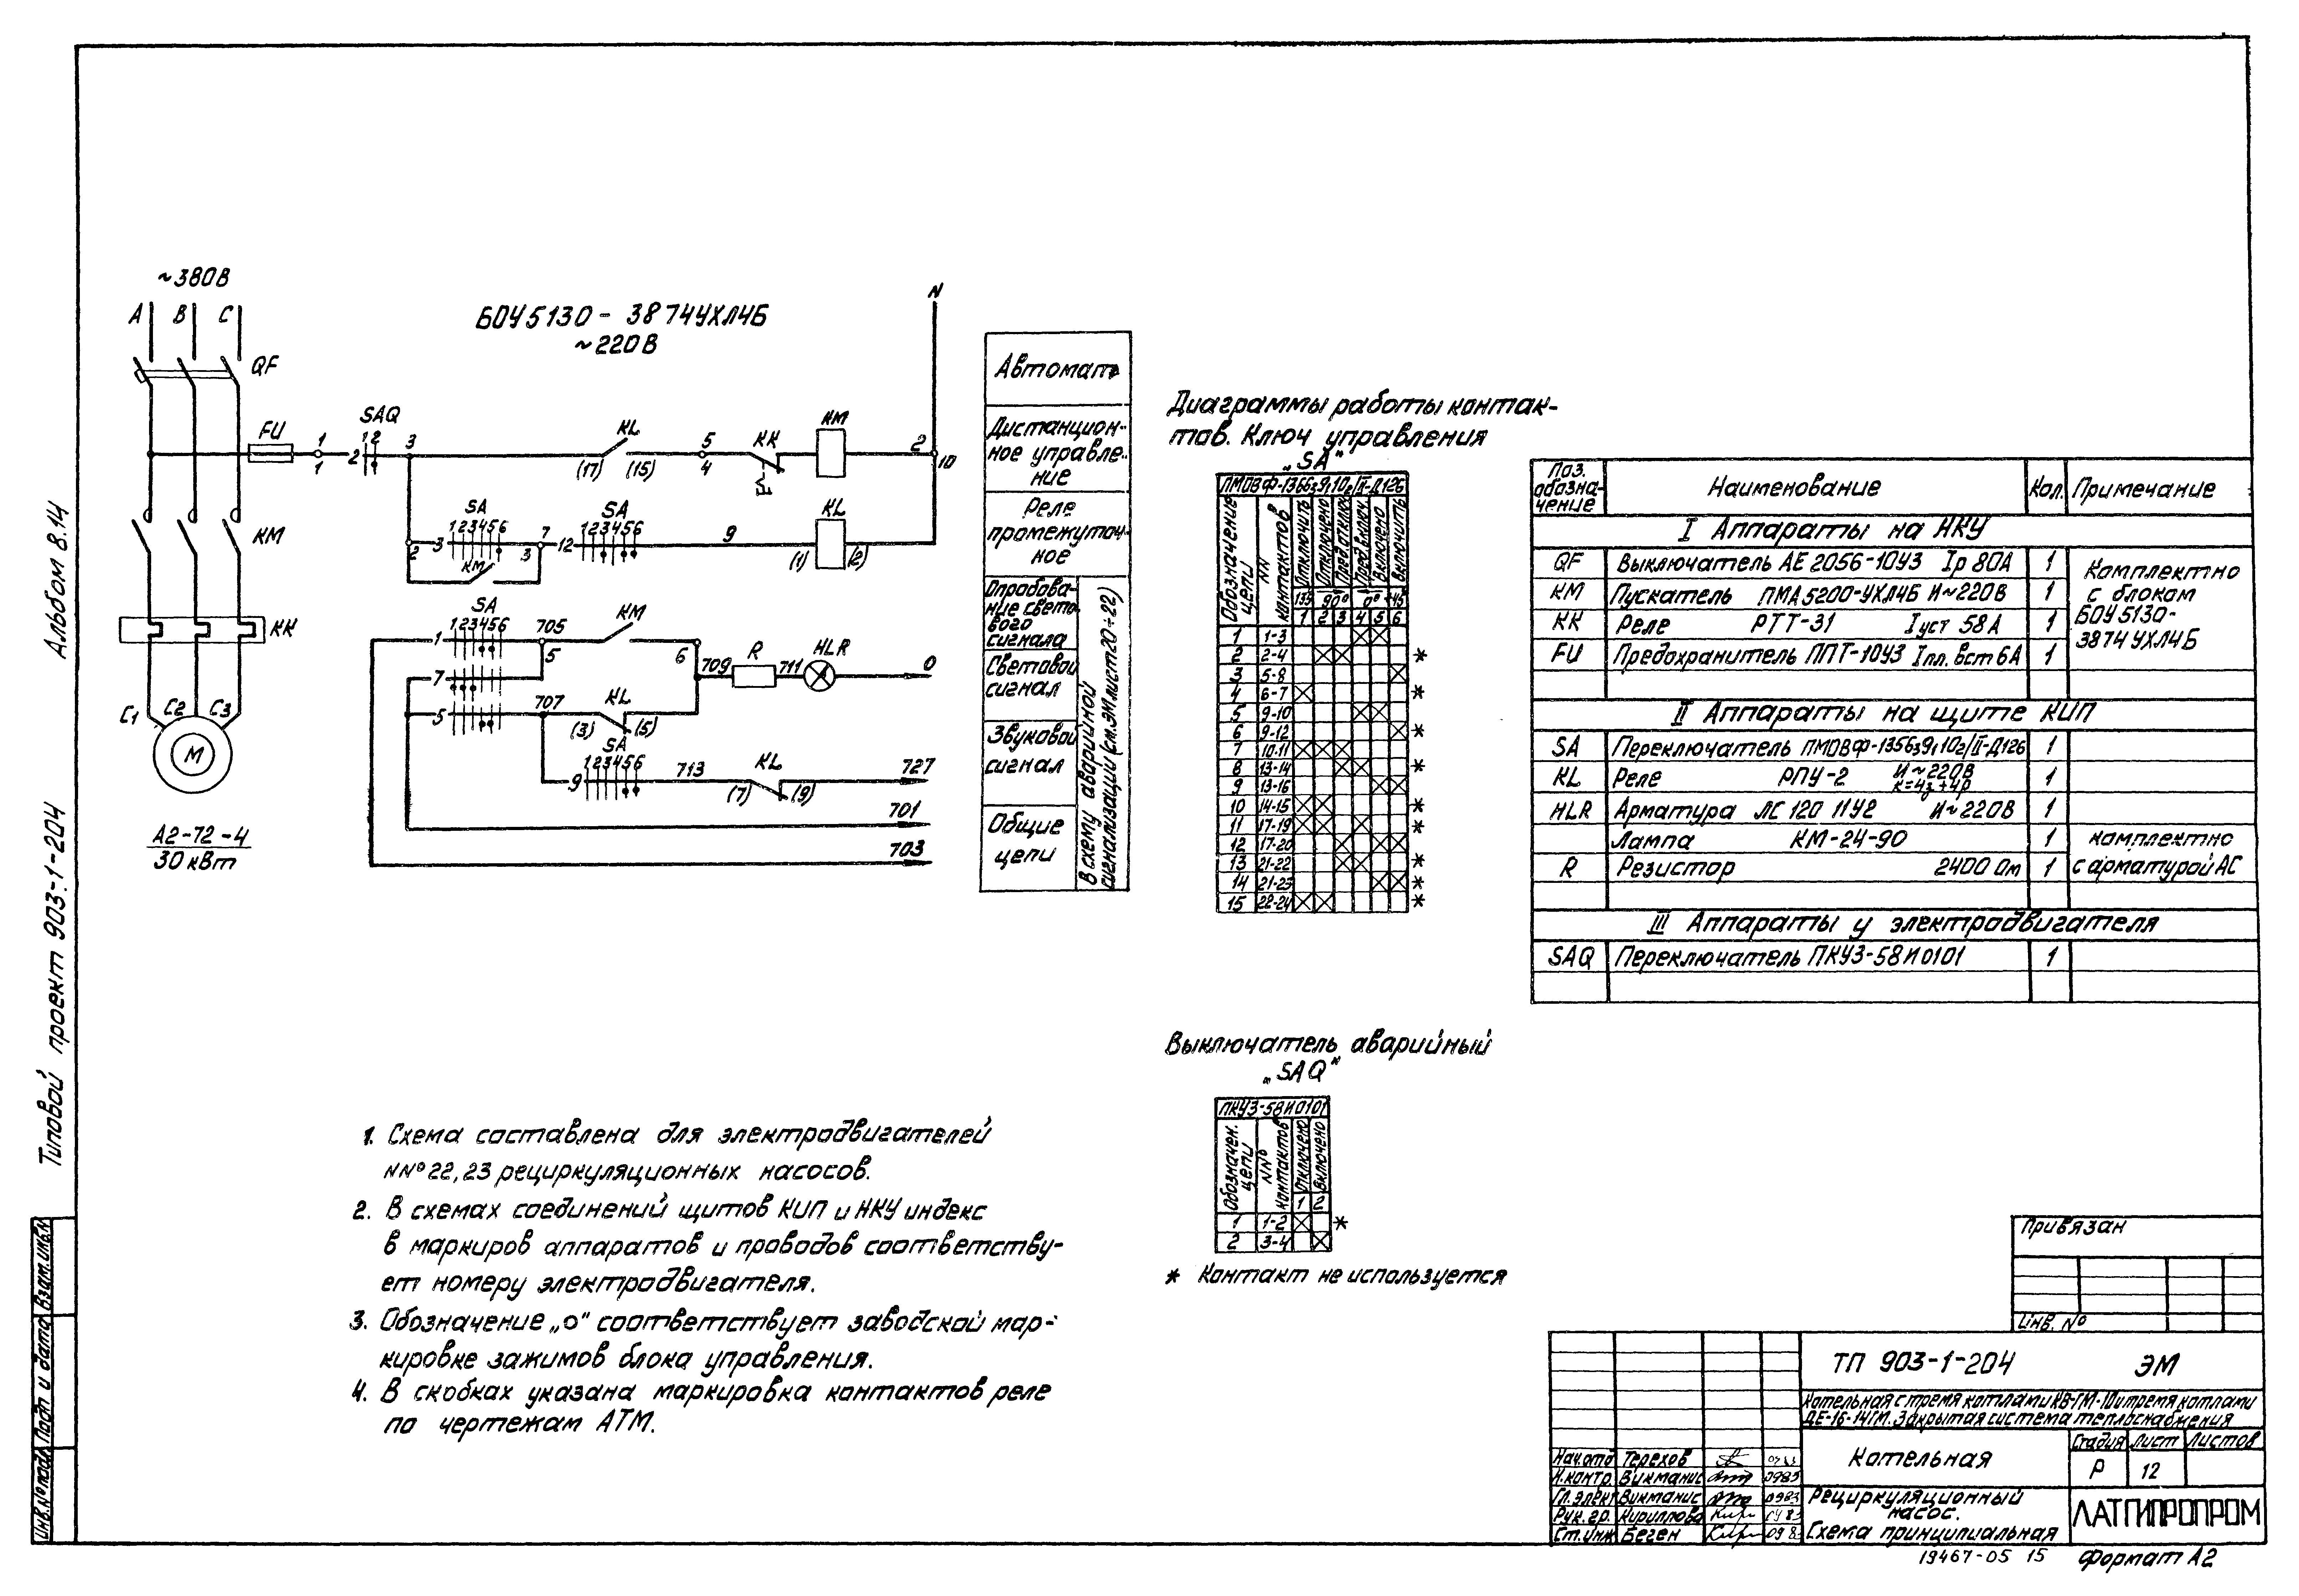 Альбом 8.14
Типовой проект 903-1-204
Инв.№ подл. Подп и дата Взат.инв.N
~380В
А В С
QF
БОУ5130 - 3874УХЛ4Б
~220В
N
FU
1
1
SAQ
1 2
2
3
KL
(17) (15)
5
4
KK
KM
2
10
KM
SA
123456
2
3
7
3
KM
SA
123456
12
9
KL
(1) (2)
KK
SA
123456
1
705
5
KM
6
7
709
R
711
HLR
0
5
707
KL
(3) (5)
SA
123456
9
713
KL
(7) (9)
727
701
703
C1 C2 C3
М
А2-72-4
30 кВт
Автомат
Дистанцион-
ное управле-
ние
Реле
промежуточ-
ное
Опробова-
ние свето-
вого
сигнала
Световой
сигнал
Звуковой
сигнал
Общие
цепи
В схему аварийной
сигнализации (см.ЭМ.лист20÷22)
Диаграммы работы контак-
тов. Ключ управления
„SA"
ПМОВФ-1366391102/II-Д126
Обозначение цепи
NN контактов
Отключить
Отключено
Пред.отключ
Пред.включ
Включено
Включить
135 90° 0° +45
1 2 3 4 5 6
1 1-3
2 2-4 *
3 5-8
4 6-7 *
5 9-10
6 9-12 *
7 10-11
8 13-14 *
9 13-16
10 14-15 *
11 17-19 *
12 17-20
13 21-22 *
14 21-23 *
15 22-24 *
Поз. обозна-чение Наименование Кол. Примечание
I Аппараты на НКУ
QF Выключатель АЕ 2056-10У3 Iр 80А 1 Комплектно
KM Пускатель ПМА5200-УХЛ4Б И~220В 1 с блоком
KK Реле РТТ-31 Iуст 58А 1 БОУ5130-
FU Предохранитель ППТ-10У3 Iпл. вст 6А 1 3874 УХЛ4Б
II Аппараты на щите КИП
SA Переключатель ПМОВФ-1356391102/II-Д126 1
KL Реле РПУ-2 И~220В к=4з+4р 1
HLR Арматура ЛС 120 11У2 И~220В 1
Лампа КМ-24-90 1 комплектно
R Резистор 2400 Ом 1 с арматурой АС
III Аппараты у электродвигателя
SAQ Переключатель ПКУ3-58И0101 1
Выключатель аварийный
„SAQ"
ПКУ3-58И0101
Обозначен. цепи
NN° контактов
Отключено
Включено
1 2
1 1-2 *
2 3-4
* Контакт не используется
1. Схема составлена для электродвигателей
NN°22,23 рециркуляционных насосов.
2. В схемах соединений щитов КИП и НКУ индекс
в маркиров аппаратов и проводов соответству-
ет номеру электродвигателя.
3. Обозначение „о" соответствует заводской мар-
кировке зажимов блока управления.
4. В скобках указана маркировка контактов реле
по чертежам АТМ.
Привязан
Инв. №
ТП 903-1-204 ЭМ
Котельная с тремя котлами КВ-ГМ-10 и тремя котлами
ДЕ-16-14ГМ. Закрытая система теплоснабжения
Котельная
Стадия Лист Листов
Р 12
Нач.отд Терехов
Н.контр. Викманис 0983
Гл.элект Викманис 0983
Рук.гр. Кириллова
Ст.инж Беген
Рециркуляционный
насос.
Схема принципиальная
ЛАТГИПРОПРОМ
19467-05 15
Формат А2